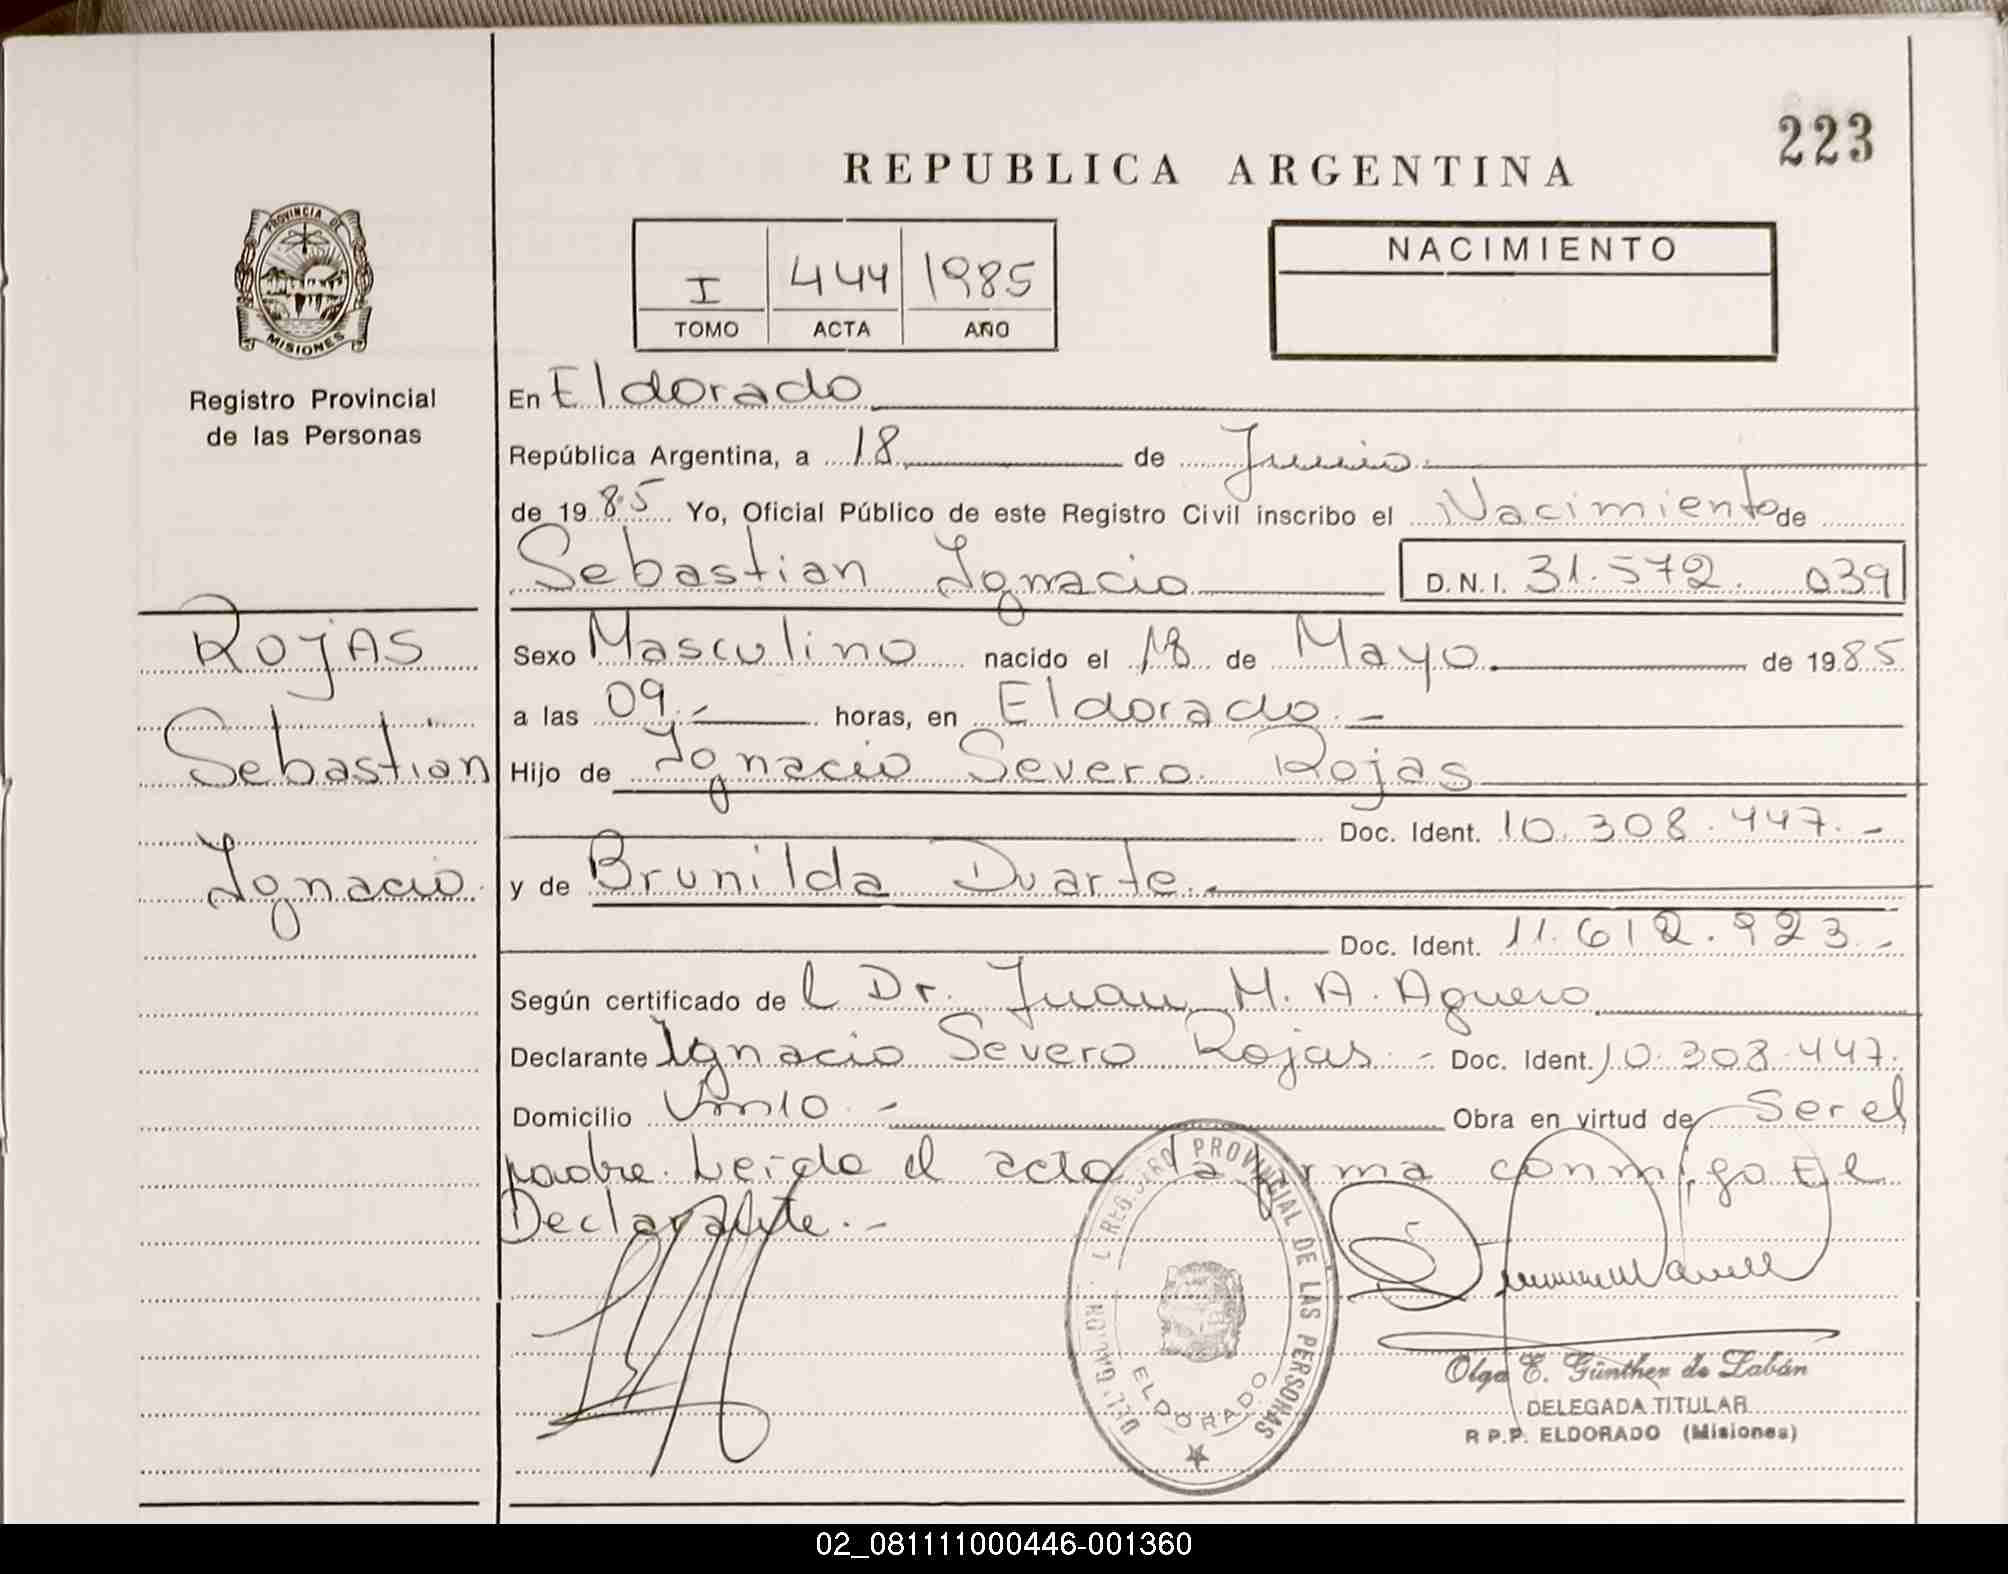 223
REPUBLICA ARGENTINA
PROVINCIA DE
MISIONES
Registro Provincial
de las Personas
I 444 1985
TOMO ACTA AÑO
NACIMIENTO
En Eldorado
República Argentina, a 18 de Junio
de 1985 Yo, Oficial Público de este Registro Civil inscribo el Nacimiento de
Sebastian Ignacio D.N.I. 31.572.039
Rojas
Sebastian
Ignacio
Sexo Masculino nacido el 18 de Mayo de 1985
a las 09.- horas, en Eldorado.-
Hijo de Ignacio Severo Rojas
Doc. Ident. 10.308.447.-
y de Brunilda Duarte.
Doc. Ident. 11.612.923.-
Según certificado del Dr. Juan M. A. Aguero
Declarante Ignacio Severo Rojas.- Doc. Ident. 10.308.447.
Domicilio .- Obra en virtud de Ser el
padre. Leida el acta la firma conmigo El
Declarante.-
REGISTRO PROVINCIAL DE LAS PERSONAS
ELDORADO
Olga E. Günther de Labán
DELEGADA TITULAR
R.P.P. ELDORADO (Misiones)
02_081111000446-001360